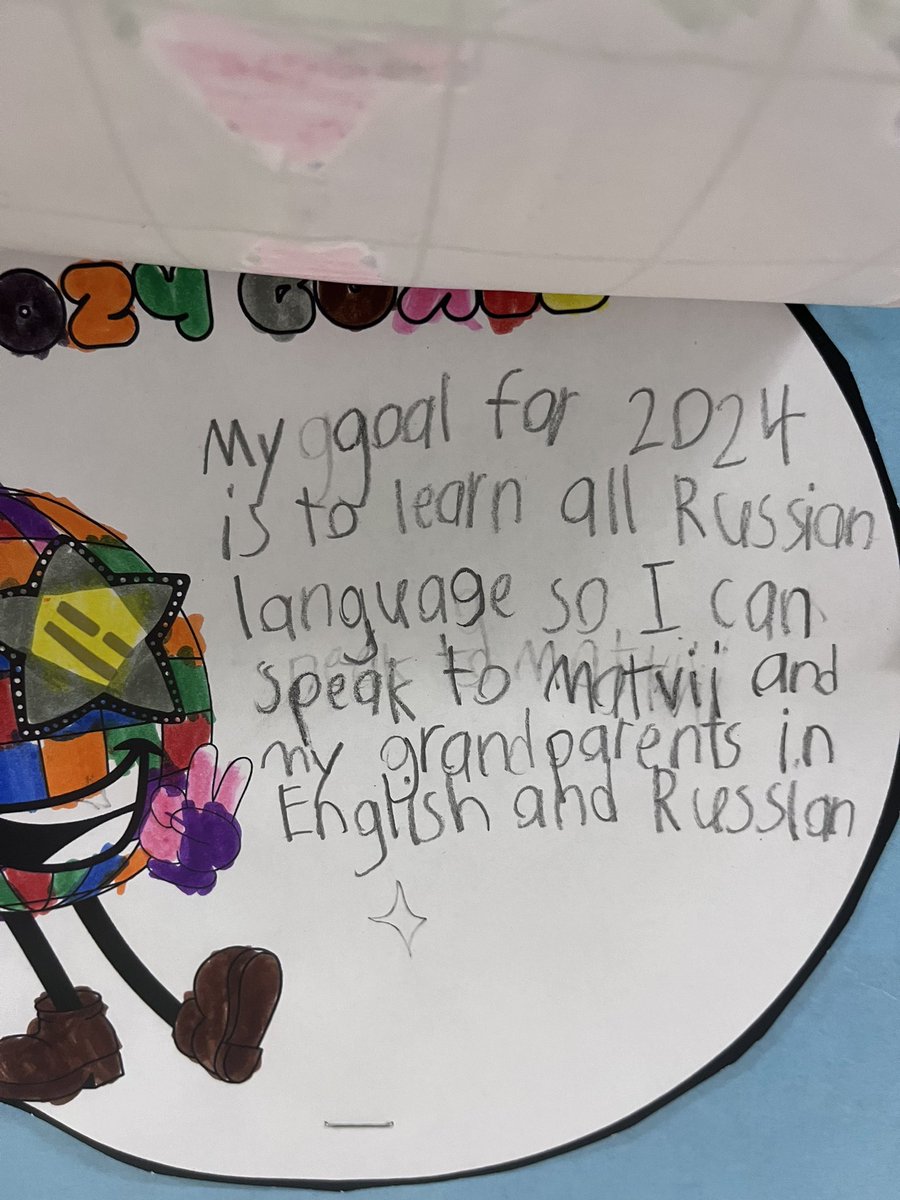 My goal for 2024
is to learn all Russian
language so I can
speak to Matvij and
my grandparents in
English and Russian